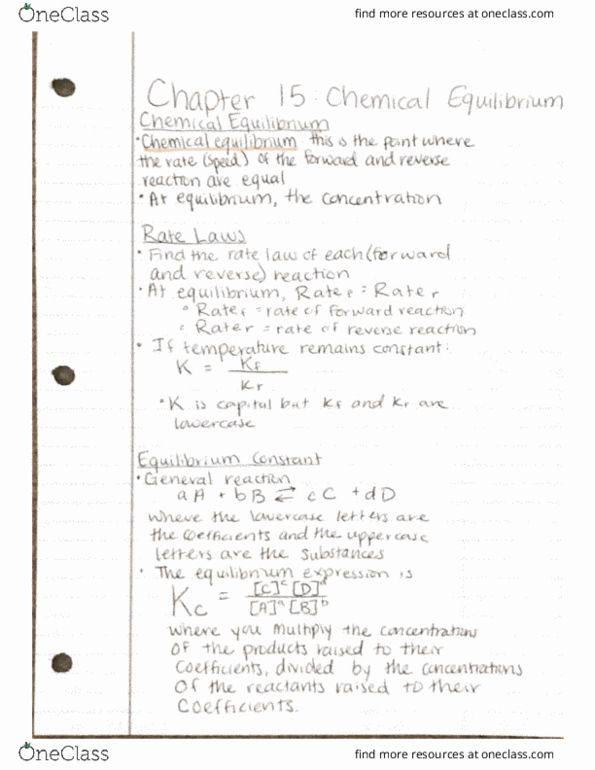 OneClass
find more resources at oneclass.com
Chapter 15: Chemical Equilibrium
Chemical Equilibrium
• Chemical equilibrium: this is the point where
the rate (speed) of the forward and reverse
reaction are equal
• At equilibrium, the concentration
Rate Laws
• Find the rate law of each (forward
and reverse) reaction
• At equilibrium, Rate_f = Rate_r
◦ Rate_f = rate of forward reaction
◦ Rate_r = rate of reverse reaction
• If temperature remains constant:
K = k_f
k_r
• K is capital but k_f and k_r are
lowercase
Equilibrium Constant
• General reaction
aA + bB ⇄ cC + dD
where the lowercase letters are
the coefficients and the uppercase
letters are the substances
• The equilibrium expression is
K_c = [C]^c [D]^d
[A]^a [B]^b
where you multiply the concentrations
of the products raised to their
coefficients, divided by the concentrations
of the reactants raised to their
coefficients.
OneClass
find more resources at oneclass.com